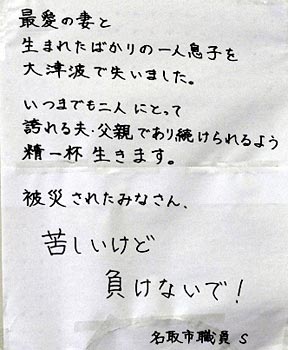 最愛の妻と
生まれたばかりの一人息子を
大津波で失いました。
いつまでも二人にとって
誇れる夫・父親であり続けられるよう
精一杯生きます。
被災されたみなさん、
苦しいけど
負けないで！
名取市職員 S